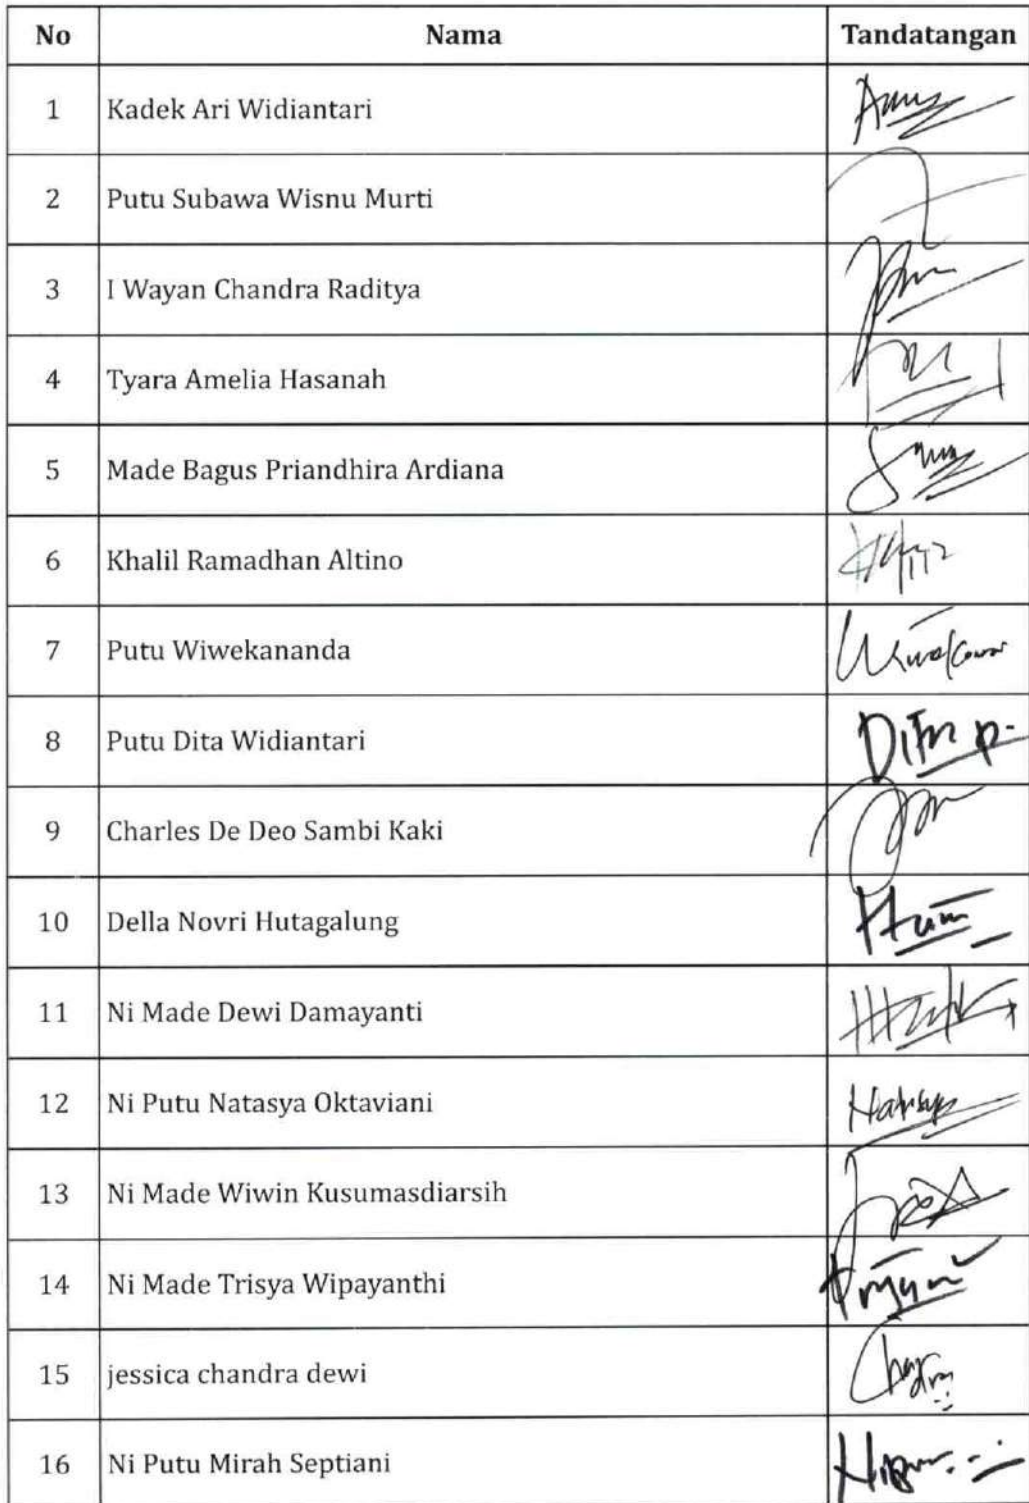 No Nama Tandatangan
1 Kadek Ari Widiantari
2 Putu Subawa Wisnu Murti
3 I Wayan Chandra Raditya
4 Tyara Amelia Hasanah
5 Made Bagus Priandhira Ardiana
6 Khalil Ramadhan Altino
7 Putu Wiwekananda
8 Putu Dita Widiantari
9 Charles De Deo Sambi Kaki
10 Della Novri Hutagalung
11 Ni Made Dewi Damayanti
12 Ni Putu Natasya Oktaviani
13 Ni Made Wiwin Kusumasdiarsih
14 Ni Made Trisya Wipayanthi
15 jessica chandra dewi
16 Ni Putu Mirah Septiani